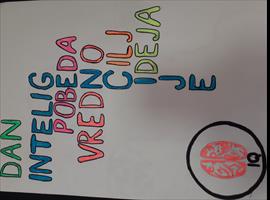 DAN
INTELIG
POBEDA
VREDNO
CILJ
IDEJA
J
E
IQ